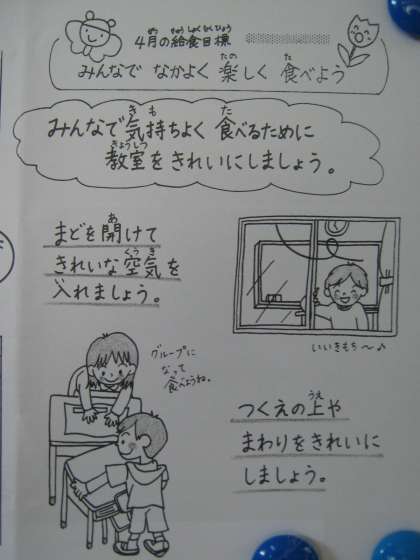 4月の給食目標
みんなで なかよく 楽しく 食べよう
みんなで気持ちよく 食べるために
教室をきれいにしましょう。
まどを開けて
きれいな空気を
入れましょう。
いいきもち～♪
グループに
なって
食べようね。
つくえの上や
まわりをきれいに
しましょう。